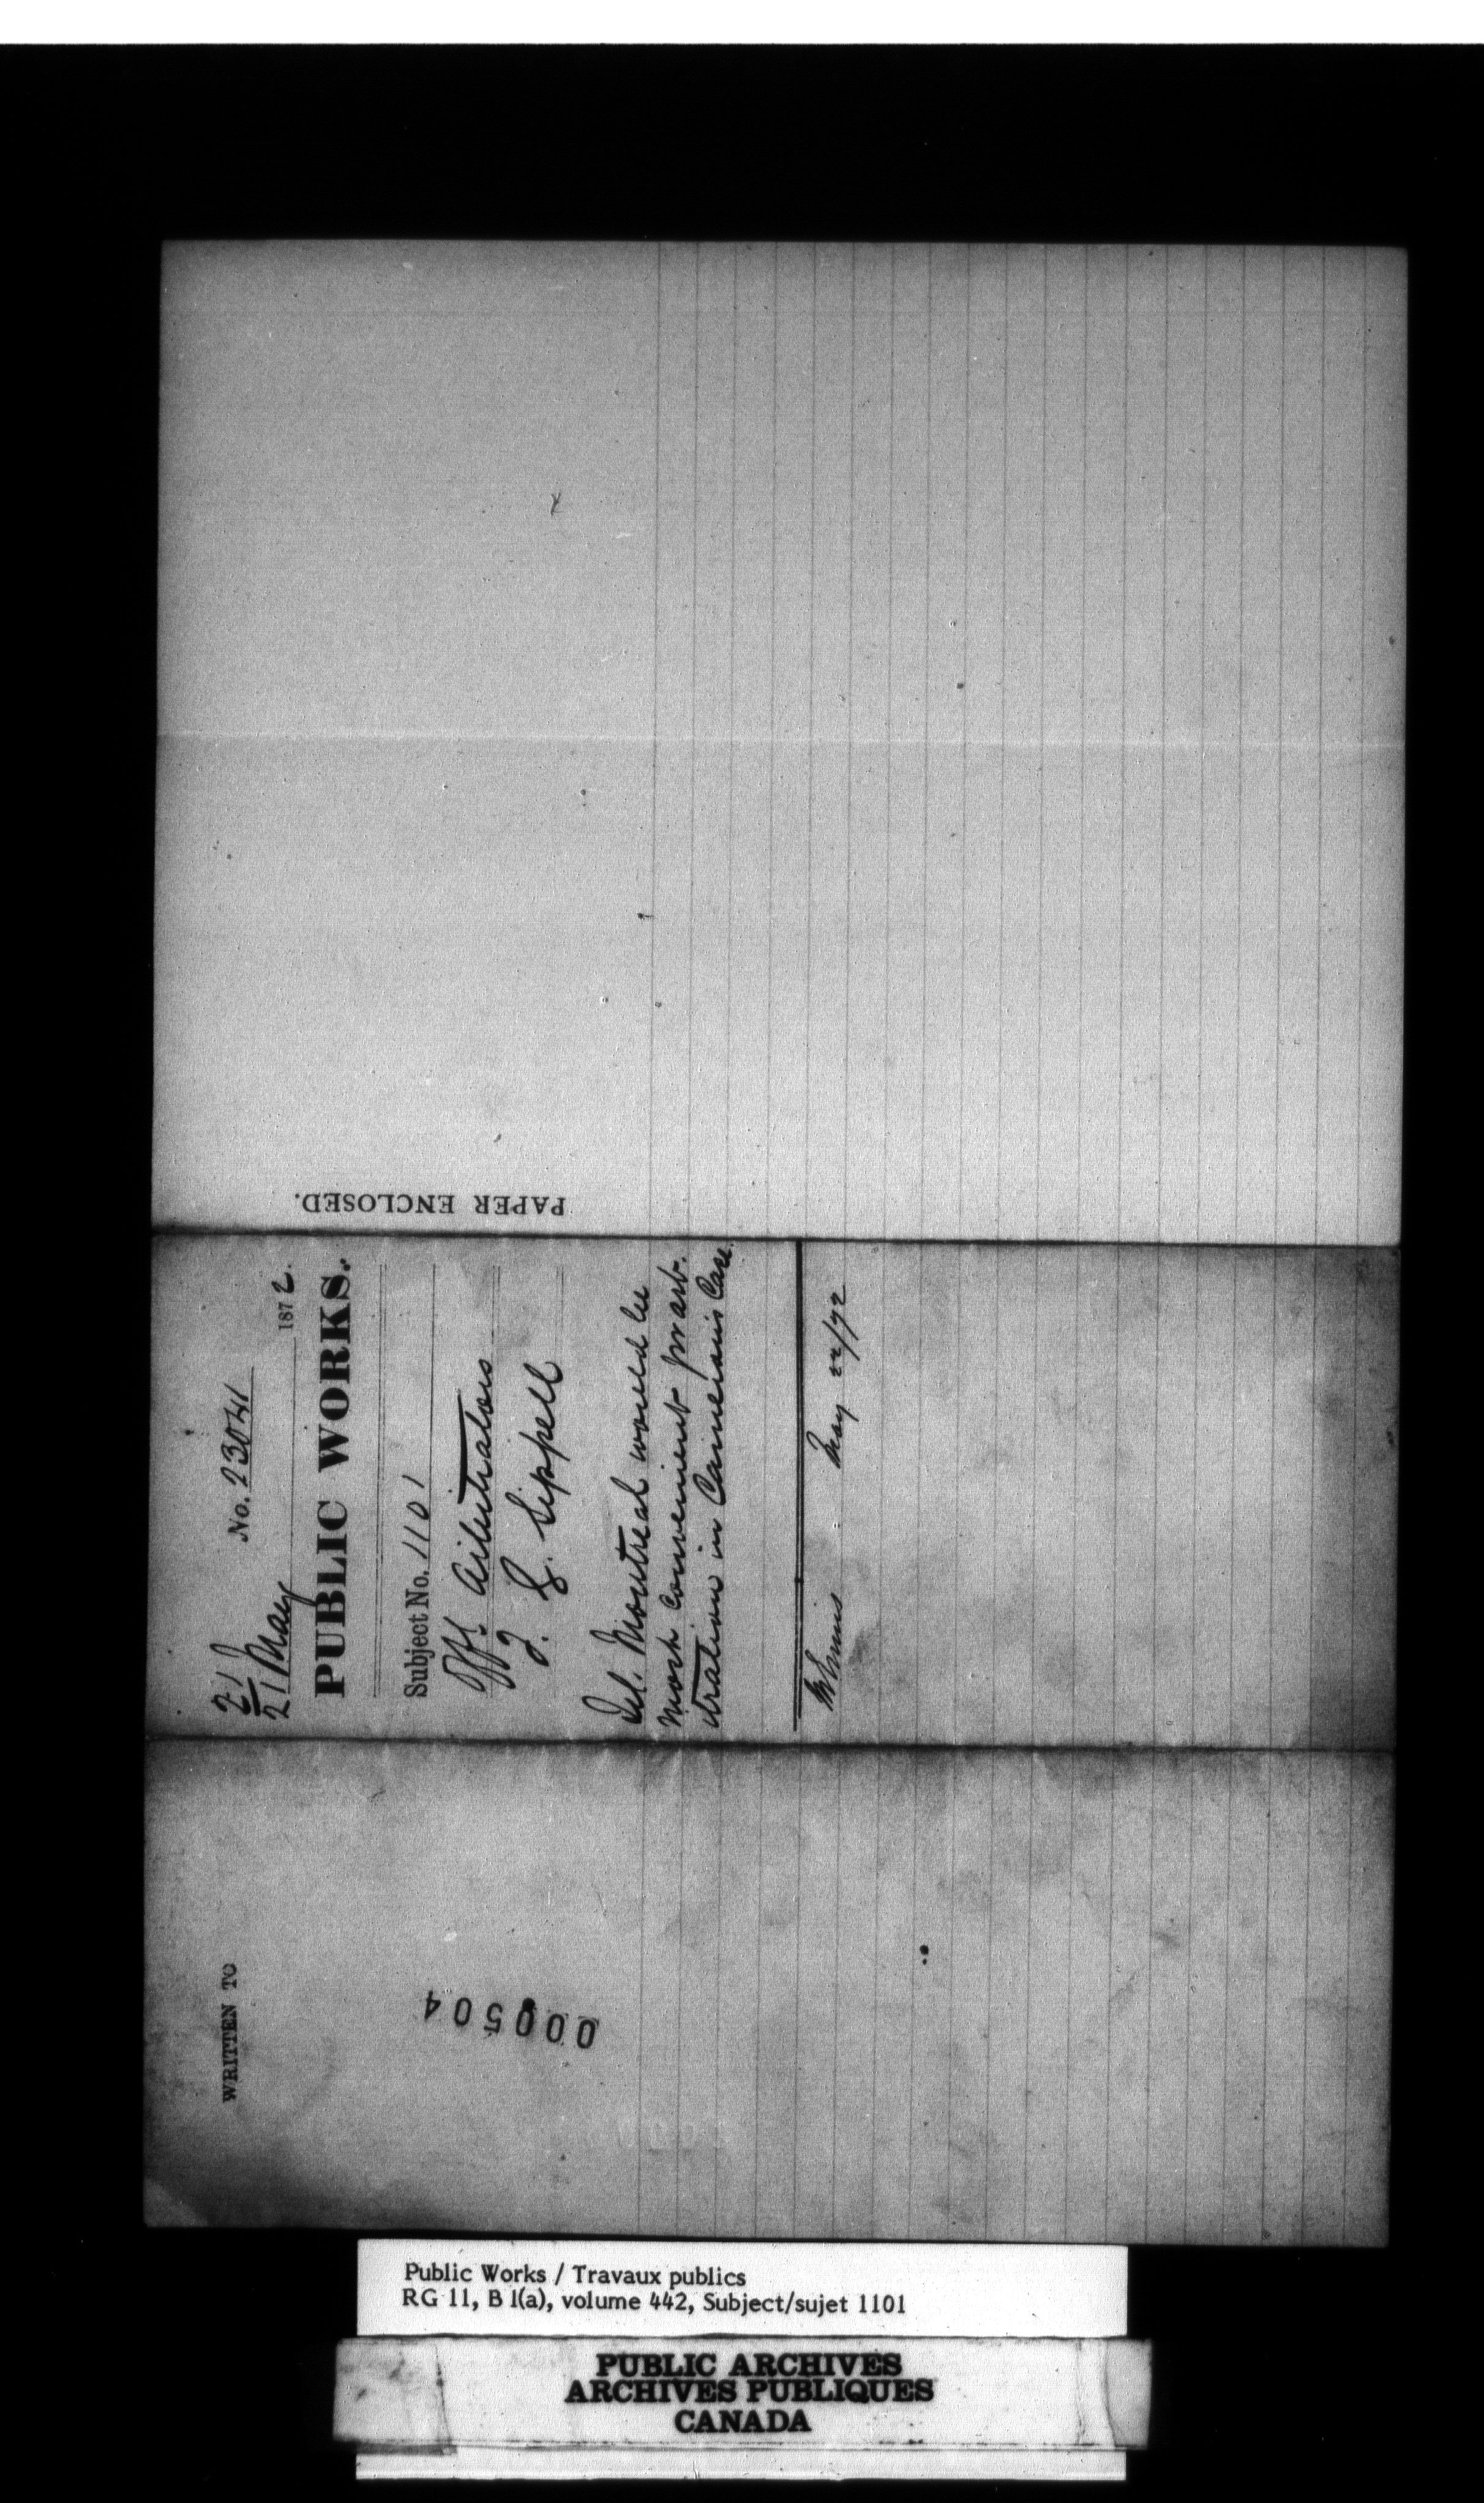 PAPER ENCLOSED.
21
21 May 1872.
No. 23041
PUBLIC WORKS.
Subject No. 1101
Off. Arbitrators
J. G. Sippell
Tel. Montreal would be
most convenient for arb-
itration in Cameron's Case.
May 22/72
WRITTEN TO
000504
Public Works / Travaux publics
RG 11, B 1(a), volume 442, Subject/sujet 1101
PUBLIC ARCHIVES
ARCHIVES PUBLIQUES
CANADA